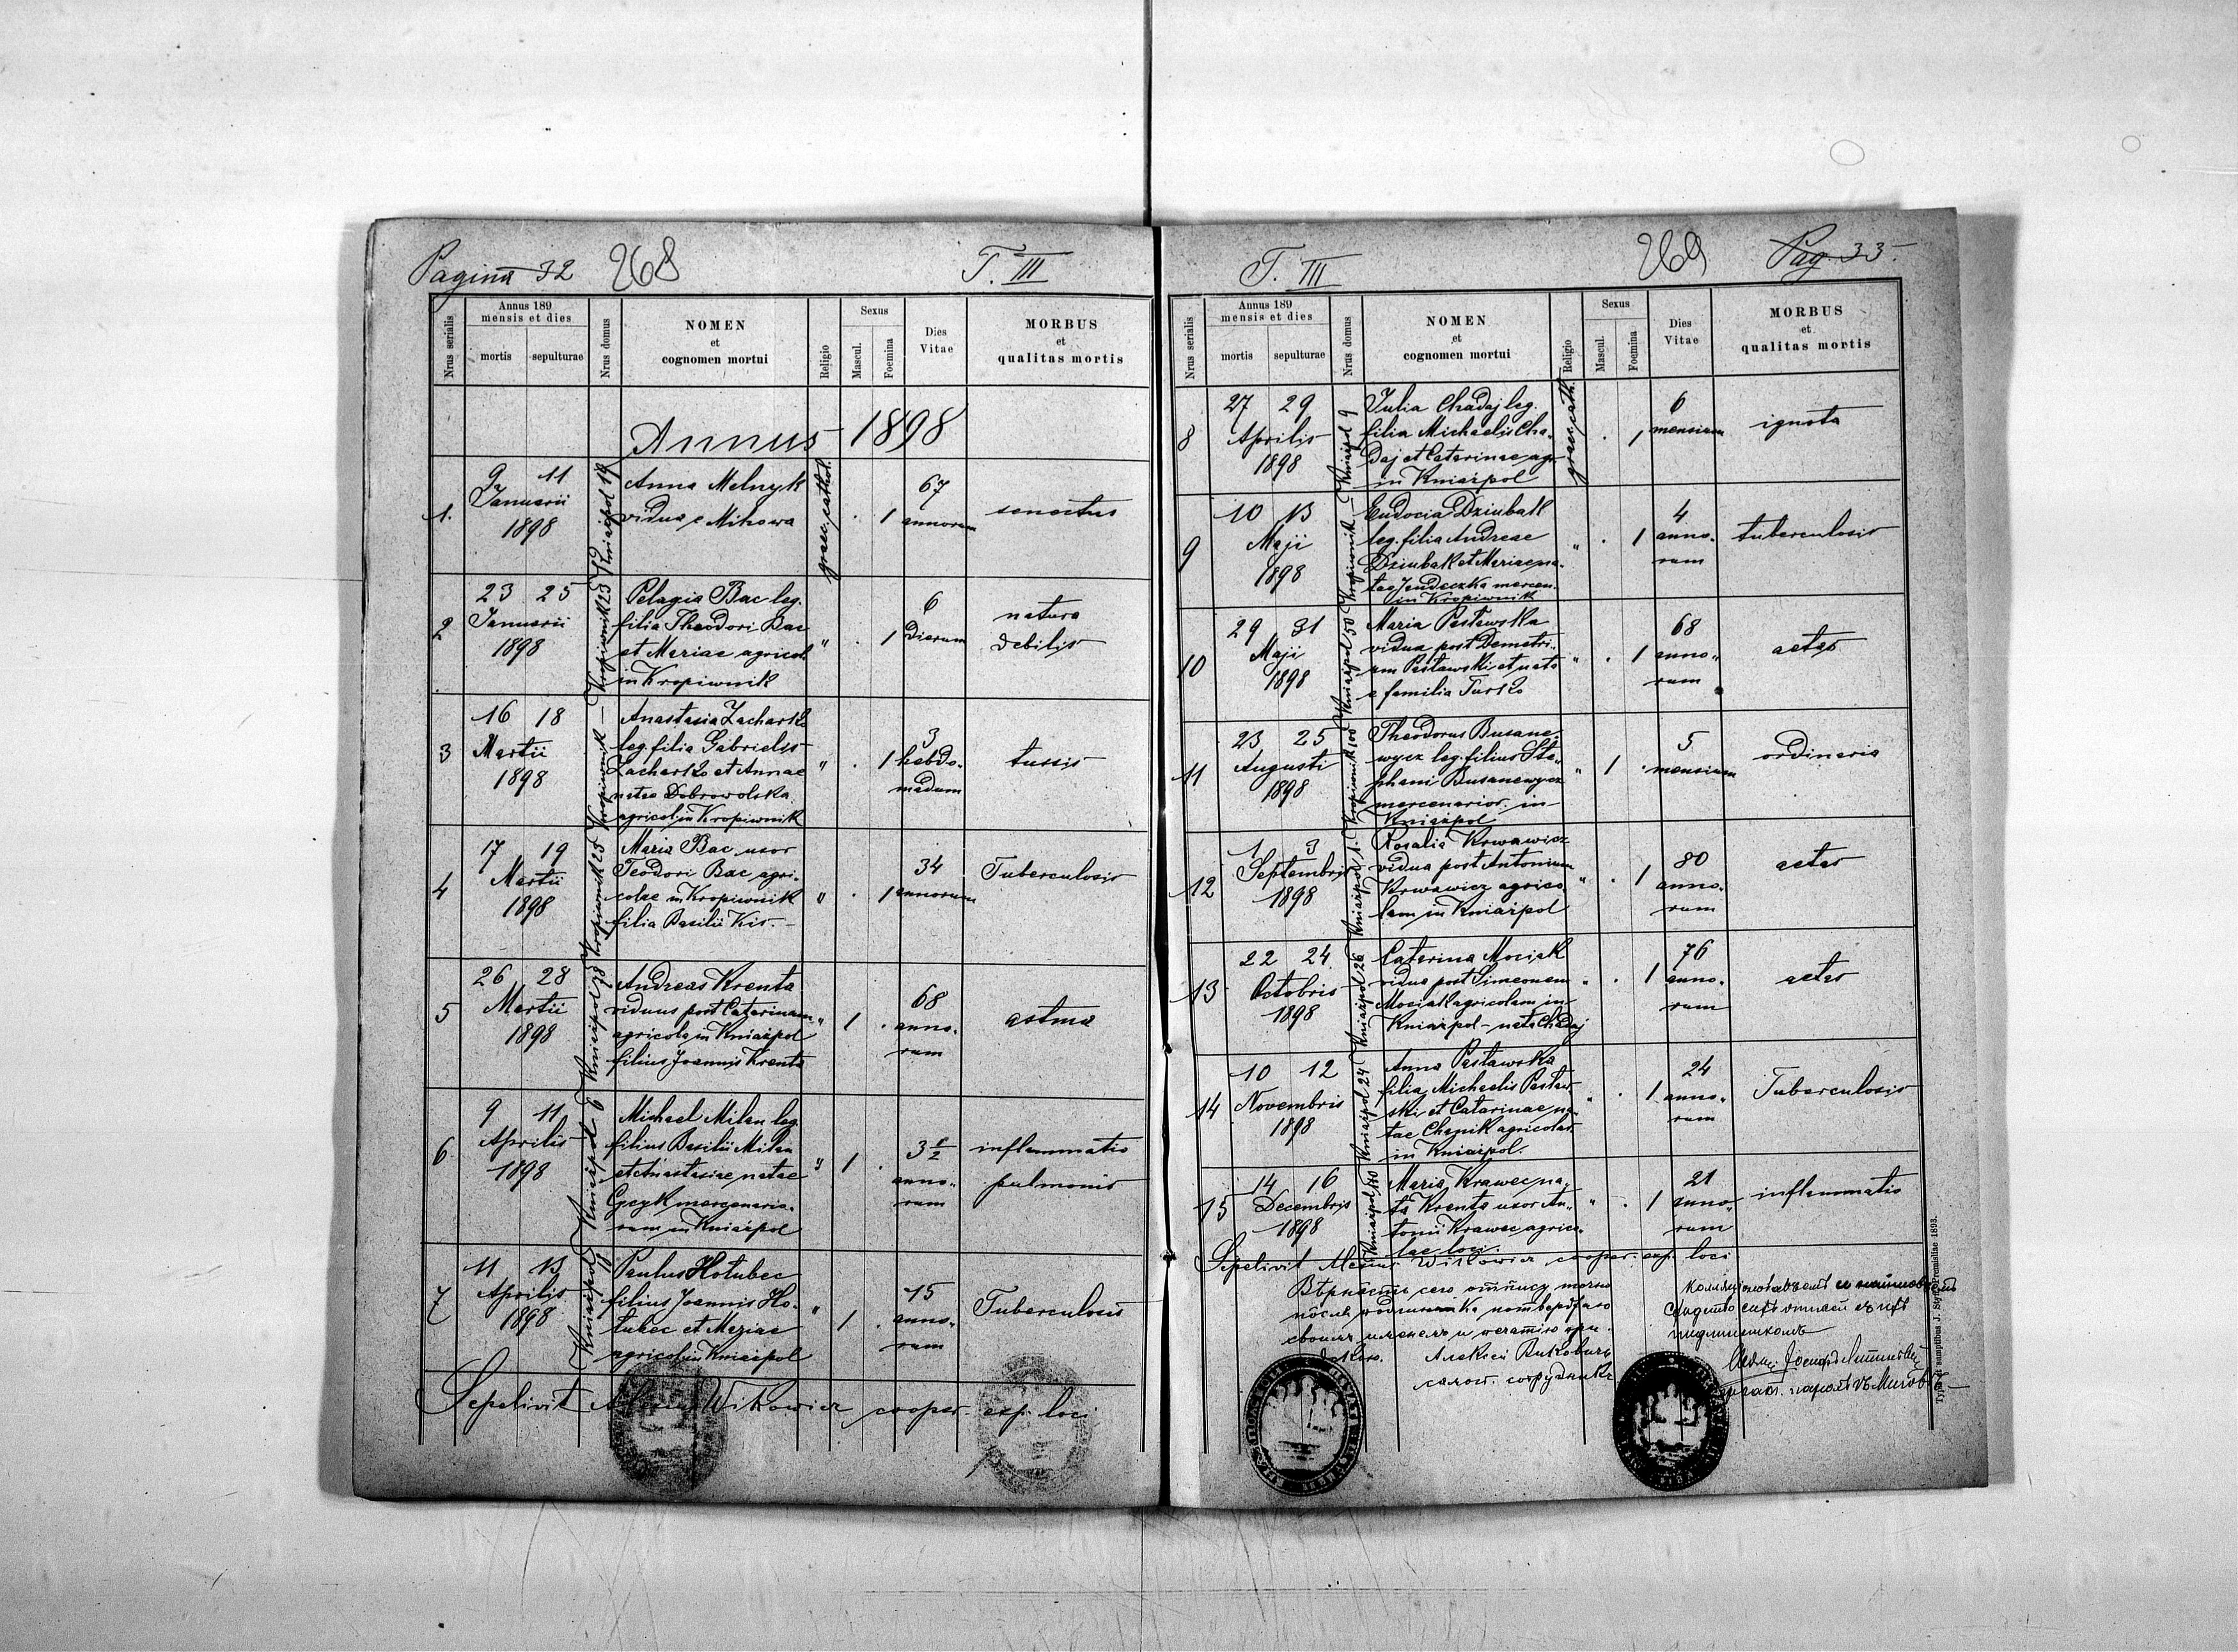 Pagina 32 268 T. III
Nrus serialis
Annus 189
mensis et dies
mortis sepulturae
Nrus domus
NOMEN
et
cognomen mortui
Religio
Sexus
Mascul. Foemina
Dies
Vitae
MORBUS
et
qualitas mortis
Annus 1898
1. 9 11
Januarii
1898
Kniażpol 19
Anna Melnyk
vidua e Mihowa
graec. cathol.
. 1
67
annorum
senectus
2 23 25
Januarii
1898
Kropiwnik 23
Pelagia Bac leg.
filia Theodori Bac
et Mariae agricol.
in Kropiwnik
" . 1
6
dierum
natura
debilis
3 16 18
Martii
1898
Kropiwnik —
Anastasia Zacharko
leg. filia Gabrielis
Zacharko et Annae
natae Dobrowolska
agricol. in Kropiwnik
" . 1
3
hebdo-
madum
tussis
4 17 19
Martii
1898
Kropiwnik 25
Maria Bac uxor
Teodori Bac agri-
colae in Kropiwnik
filia Basilii Kis. -
" . 1
34
annorum
Tuberculosis
5 26 28
Martii
1898
Kniażpol 78
Andreas Krenta
viduus post Catarinam
agricola in Kniażpol
filius Joannis Krenta
" 1 .
68
anno-
rum
astma
6 9 11
Aprilis
1898
Kniażpol 6
Michael Milan leg.
filius Basilii Milan
et Anastasiae natae
mercenario-
rum in Kniażpol
" 1 .
3 1/2
anno-
rum
inflammatio
pulmonis
7 11 13
Aprilis
1898
Kniażpol 11
Paulus Hołubec
filius Joannis Ho-
łubec et Mariae
agricol. in Kniażpol
" 1 .
15
anno-
rum
Tuberculosis
Sepelivit Alexius Witkowicz cooper. exp. loci
T. III 269 Pag. 33.
Nrus serialis
Annus 189
mensis et dies
mortis sepulturae
Nrus domus
NOMEN
et
cognomen mortui
Religio
Sexus
Mascul. Foemina
Dies
Vitae
MORBUS
et
qualitas mortis
8 27 29
Aprilis
1898
Kniażpol 9
Julia Chadaj leg.
filia Michaelis Cha-
daj et Catarinae agr.
in Kniażpol
graec. cath.
. 1
6
mensium
ignota
9 10 13
Maji
1898
Kropiwnik —
Eudocia Dziubak
leg. filia Andreae
Dziubak et Mariae na-
tae mercen.
in Kropiwnik
" . 1
4
anno-
rum
tuberculosis
10 29 31
Maji
1898
Kniażpol 50
Maria Pasławska
vidua post Demetri-
um Pasławski et nata
e familia Turko
" . 1
68
anno-
rum
aetas
11 23 25
Augusti
1898
Kropiwnik 100
Theodorus Busane-
wycz leg. filius Ste-
phani Busanewycz
mercenarior. in
Kniażpol
" 1 .
5
mensium
ordinaria
12 1 3
Septembris
1898
Kniażpol 1.
Rosalia Krwawicz
vidua post Antonium
Krwawicz agrico-
lam in Kniażpol
" . 1
80
anno-
rum
aetas
13 22 24
Octobris
1898
Kniażpol 26
Catarina Mociak
vidua post Simeonem
Mociak agricolam in
Kniażpol - nata Chadaj
" . 1
76
anno-
rum
aetas
14 10 12
Novembris
1898
Kniażpol 24
Anna Pasławska
filia Michaelis Pasław-
ski et Catarinae na-
tae Chapik agricolar.
in Kniażpol.
" . 1
24
anno-
rum
Tuberculosis
15 14 16
Decembris
1898
Kniażpol 110
Maria Krawec na-
ta Krenta uxor An-
tonii Krawec agrico-
lae loci.
" . 1
21
anno-
rum
inflammatio
Sepelivit Alexius Witkowicz cooper. exp. loci
Вѣрнôсть сего отпису точно
пôсля родимика потверджаю
своимъ именемъ и печатію при-
Алексій Витковичъ
сотрудникъ
Typis et sumptibus J. Styfi Premisliae 1893.